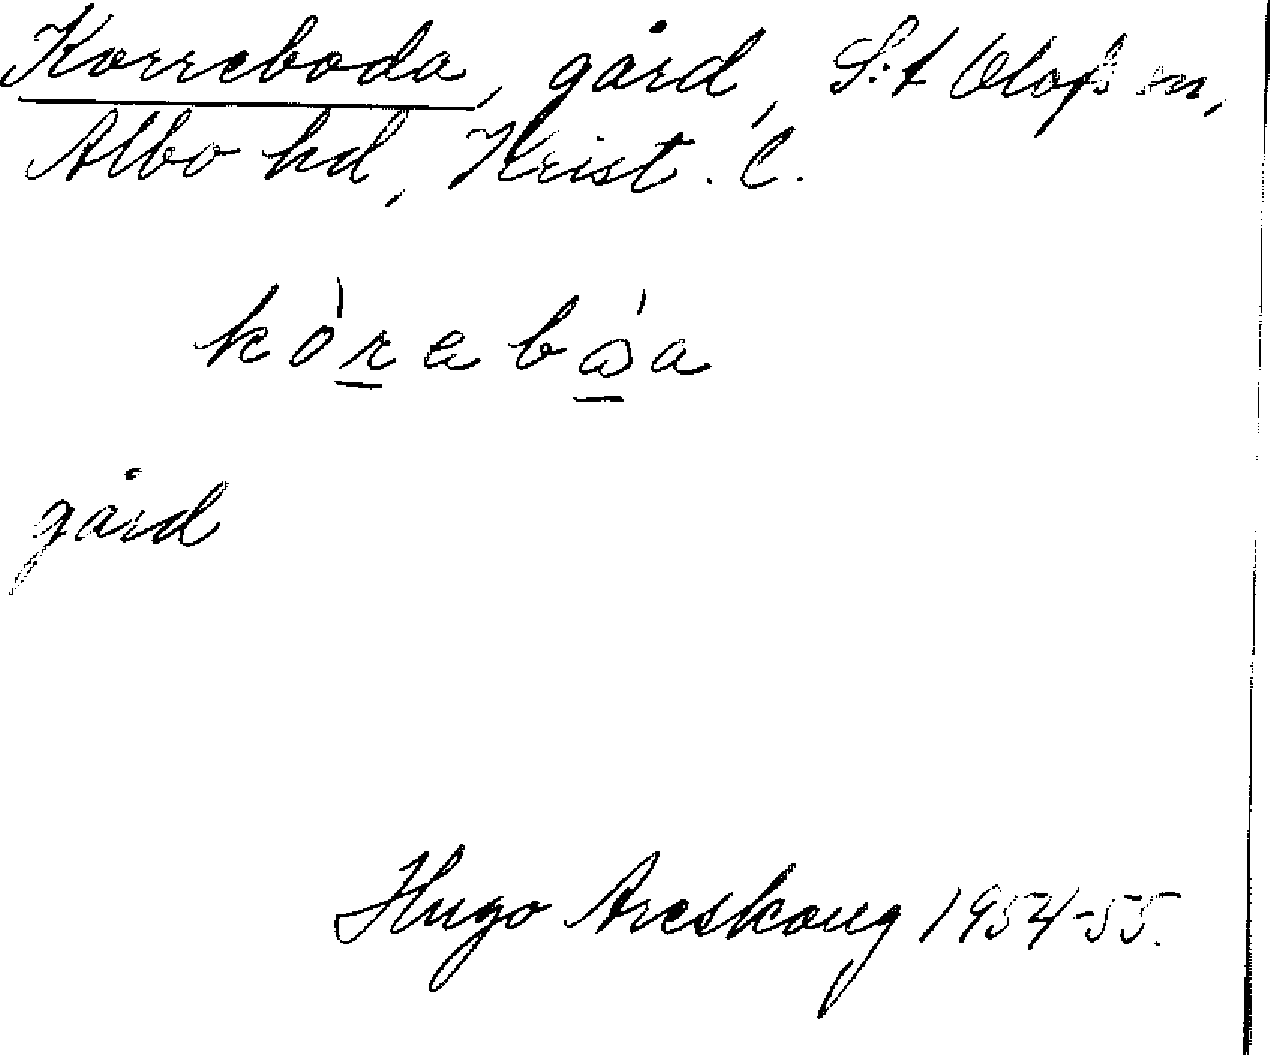 Korreboda, gård, S:t Olofs sn,
Albo hd, Krist. l.
gård
Hugo Areskoug 1954-55.